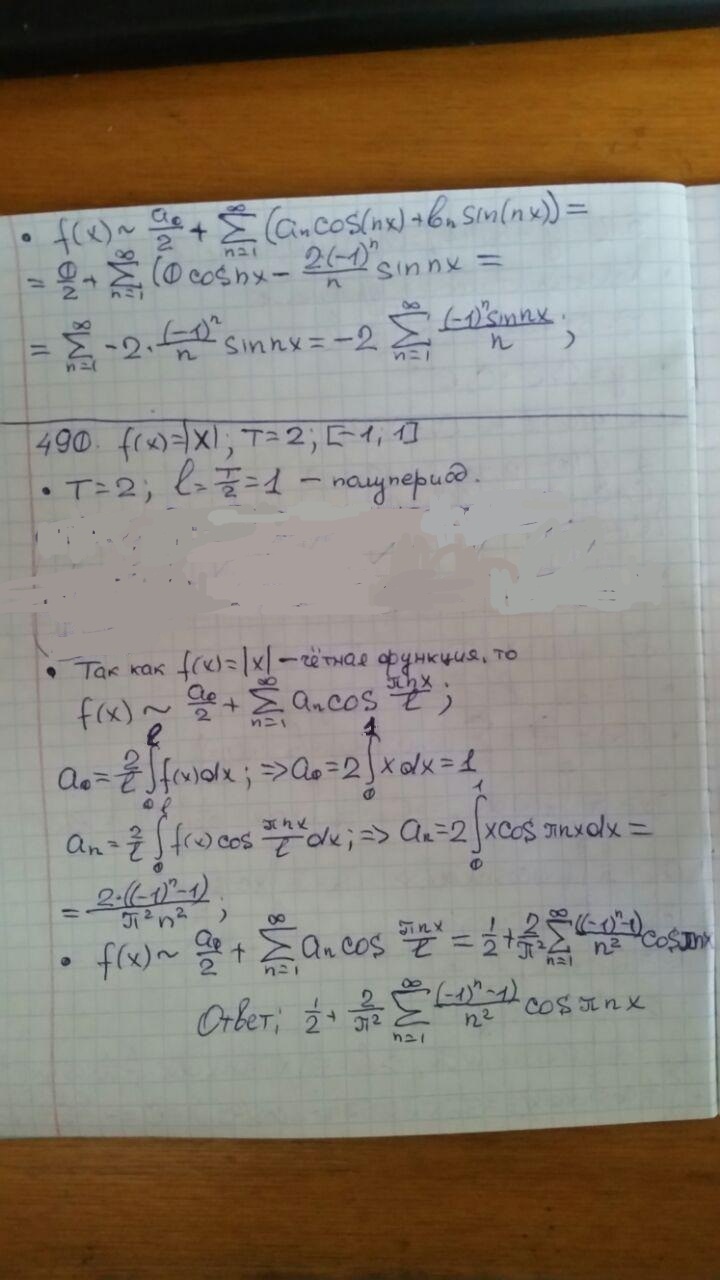 • f(x) ~ a₀/2 + ∑_{n=1}^{∞} (aₙcos(nx) + bₙ sin(nx)) =
= 0/2 + ∑_{n=1}^{∞} (0 cosnx − 2(-1)ⁿ/n sin nx =
= ∑_{n=1}^{∞} -2 · (-1)ⁿ/n sin nx = -2 ∑_{n=1}^{∞} (-1)ⁿsinnx/n ;
490. f(x)=|x|; T=2; [-1; 1]
• T=2; l = T/2 = 1 – полупериод.
• Так как f(x)=|x| – чётная функция, то
f(x) ~ a₀/2 + ∑_{n=1}^{∞} aₙcos πnx/l ;
a₀ = 2/l ∫₀ˡ f(x)dx ; => a₀ = 2∫₀¹ x dx = 1
aₙ = 2/l ∫₀ˡ f(x) cos πnx/l dx ; => aₙ = 2∫₀¹ xcos πnxdx =
= 2·((-1)ⁿ-1)/π²n² ;
• f(x) ~ a₀/2 + ∑_{n=1}^{∞} aₙcos πnx/l = 1/2 + 2/π² ∑_{n=1}^{∞} ((-1)ⁿ-1)/n² cosπnx
Ответ; 1/2 + 2/π² ∑_{n=1}^{∞} (-1)ⁿ-1)/n² cos πnx